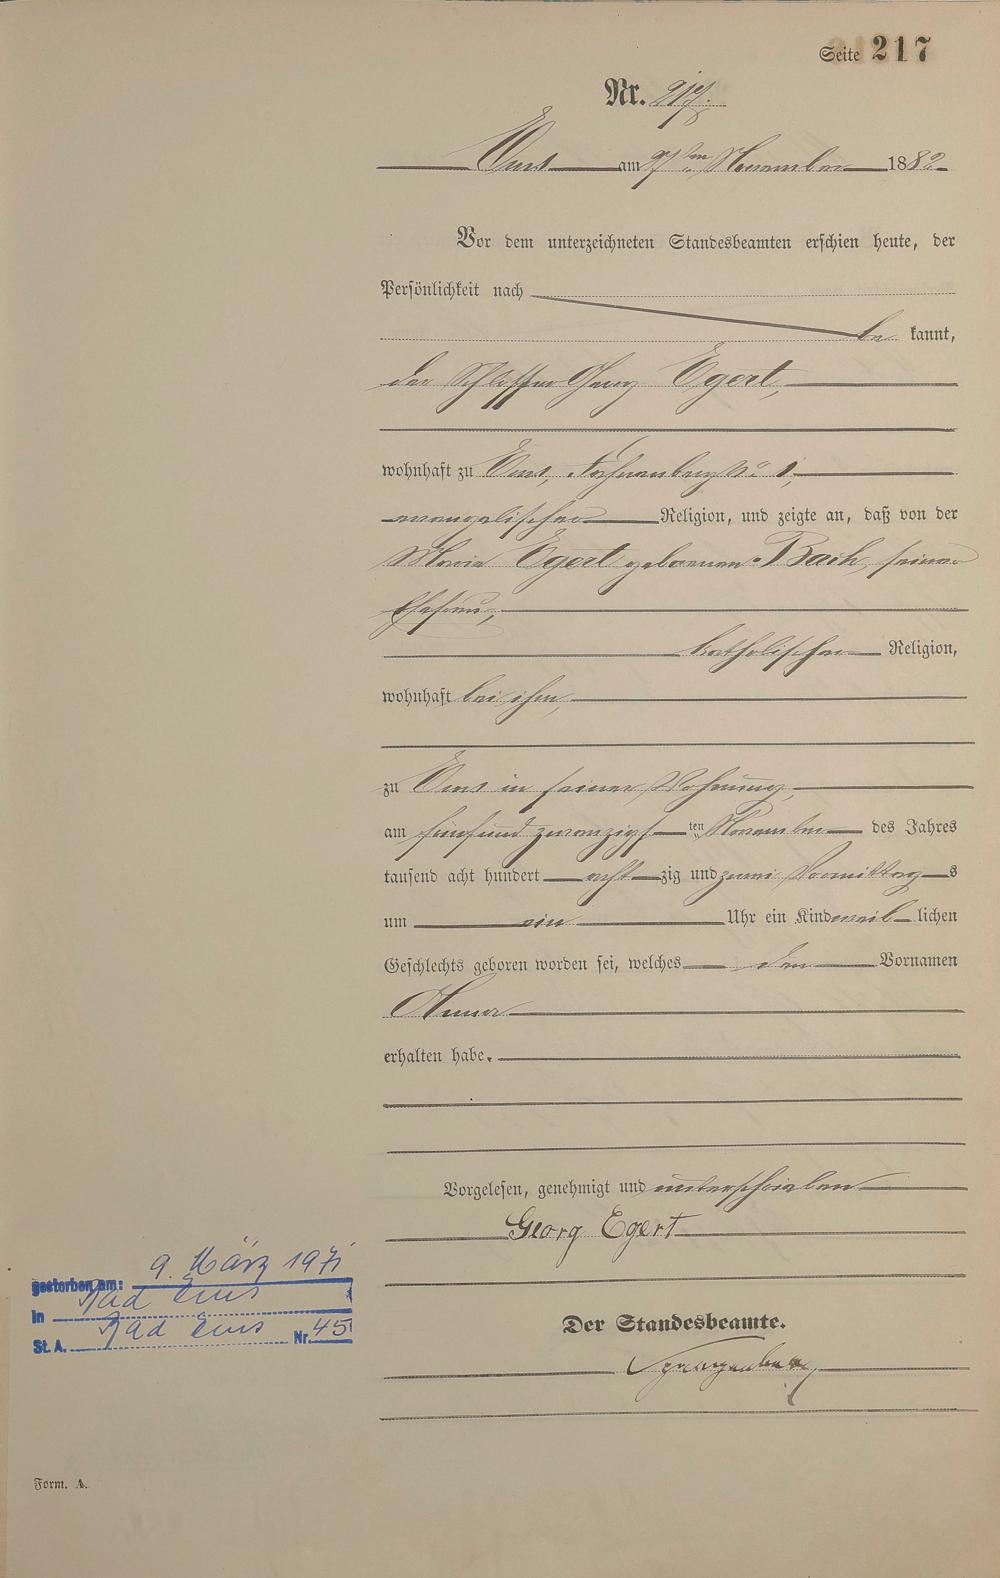 Seite 217
Nr. 217.
Ems am 27ten November 1882
Vor dem unterzeichneten Standesbeamten erschien heute, der
Persönlichkeit nach
be kannt,
der Schlosser Georg Egert,
wohnhaft zu Ems, No. 1,
evangelischer Religion, und zeigte an, daß von der
Maria Egert geborenen Bach, seiner
Ehefrau,
katholischer Religion,
wohnhaft bei ihm,
zu Ems in seiner Wohnung,
am fünfund zwanzigsten November des Jahres
tausend acht hundert acht zig und zwei Vormittags
um ein Uhr ein Kind weiblichen
Geschlechts geboren worden sei, welches den Vornamen
Anna
erhalten habe.
Vorgelesen, genehmigt und unterschrieben
Georg Egert
gestorben am: 9. März 1971
in Bad Ems
St. A. Bad Ems Nr. 45
Der Standesbeamte.
Spangenberg
Form. A.